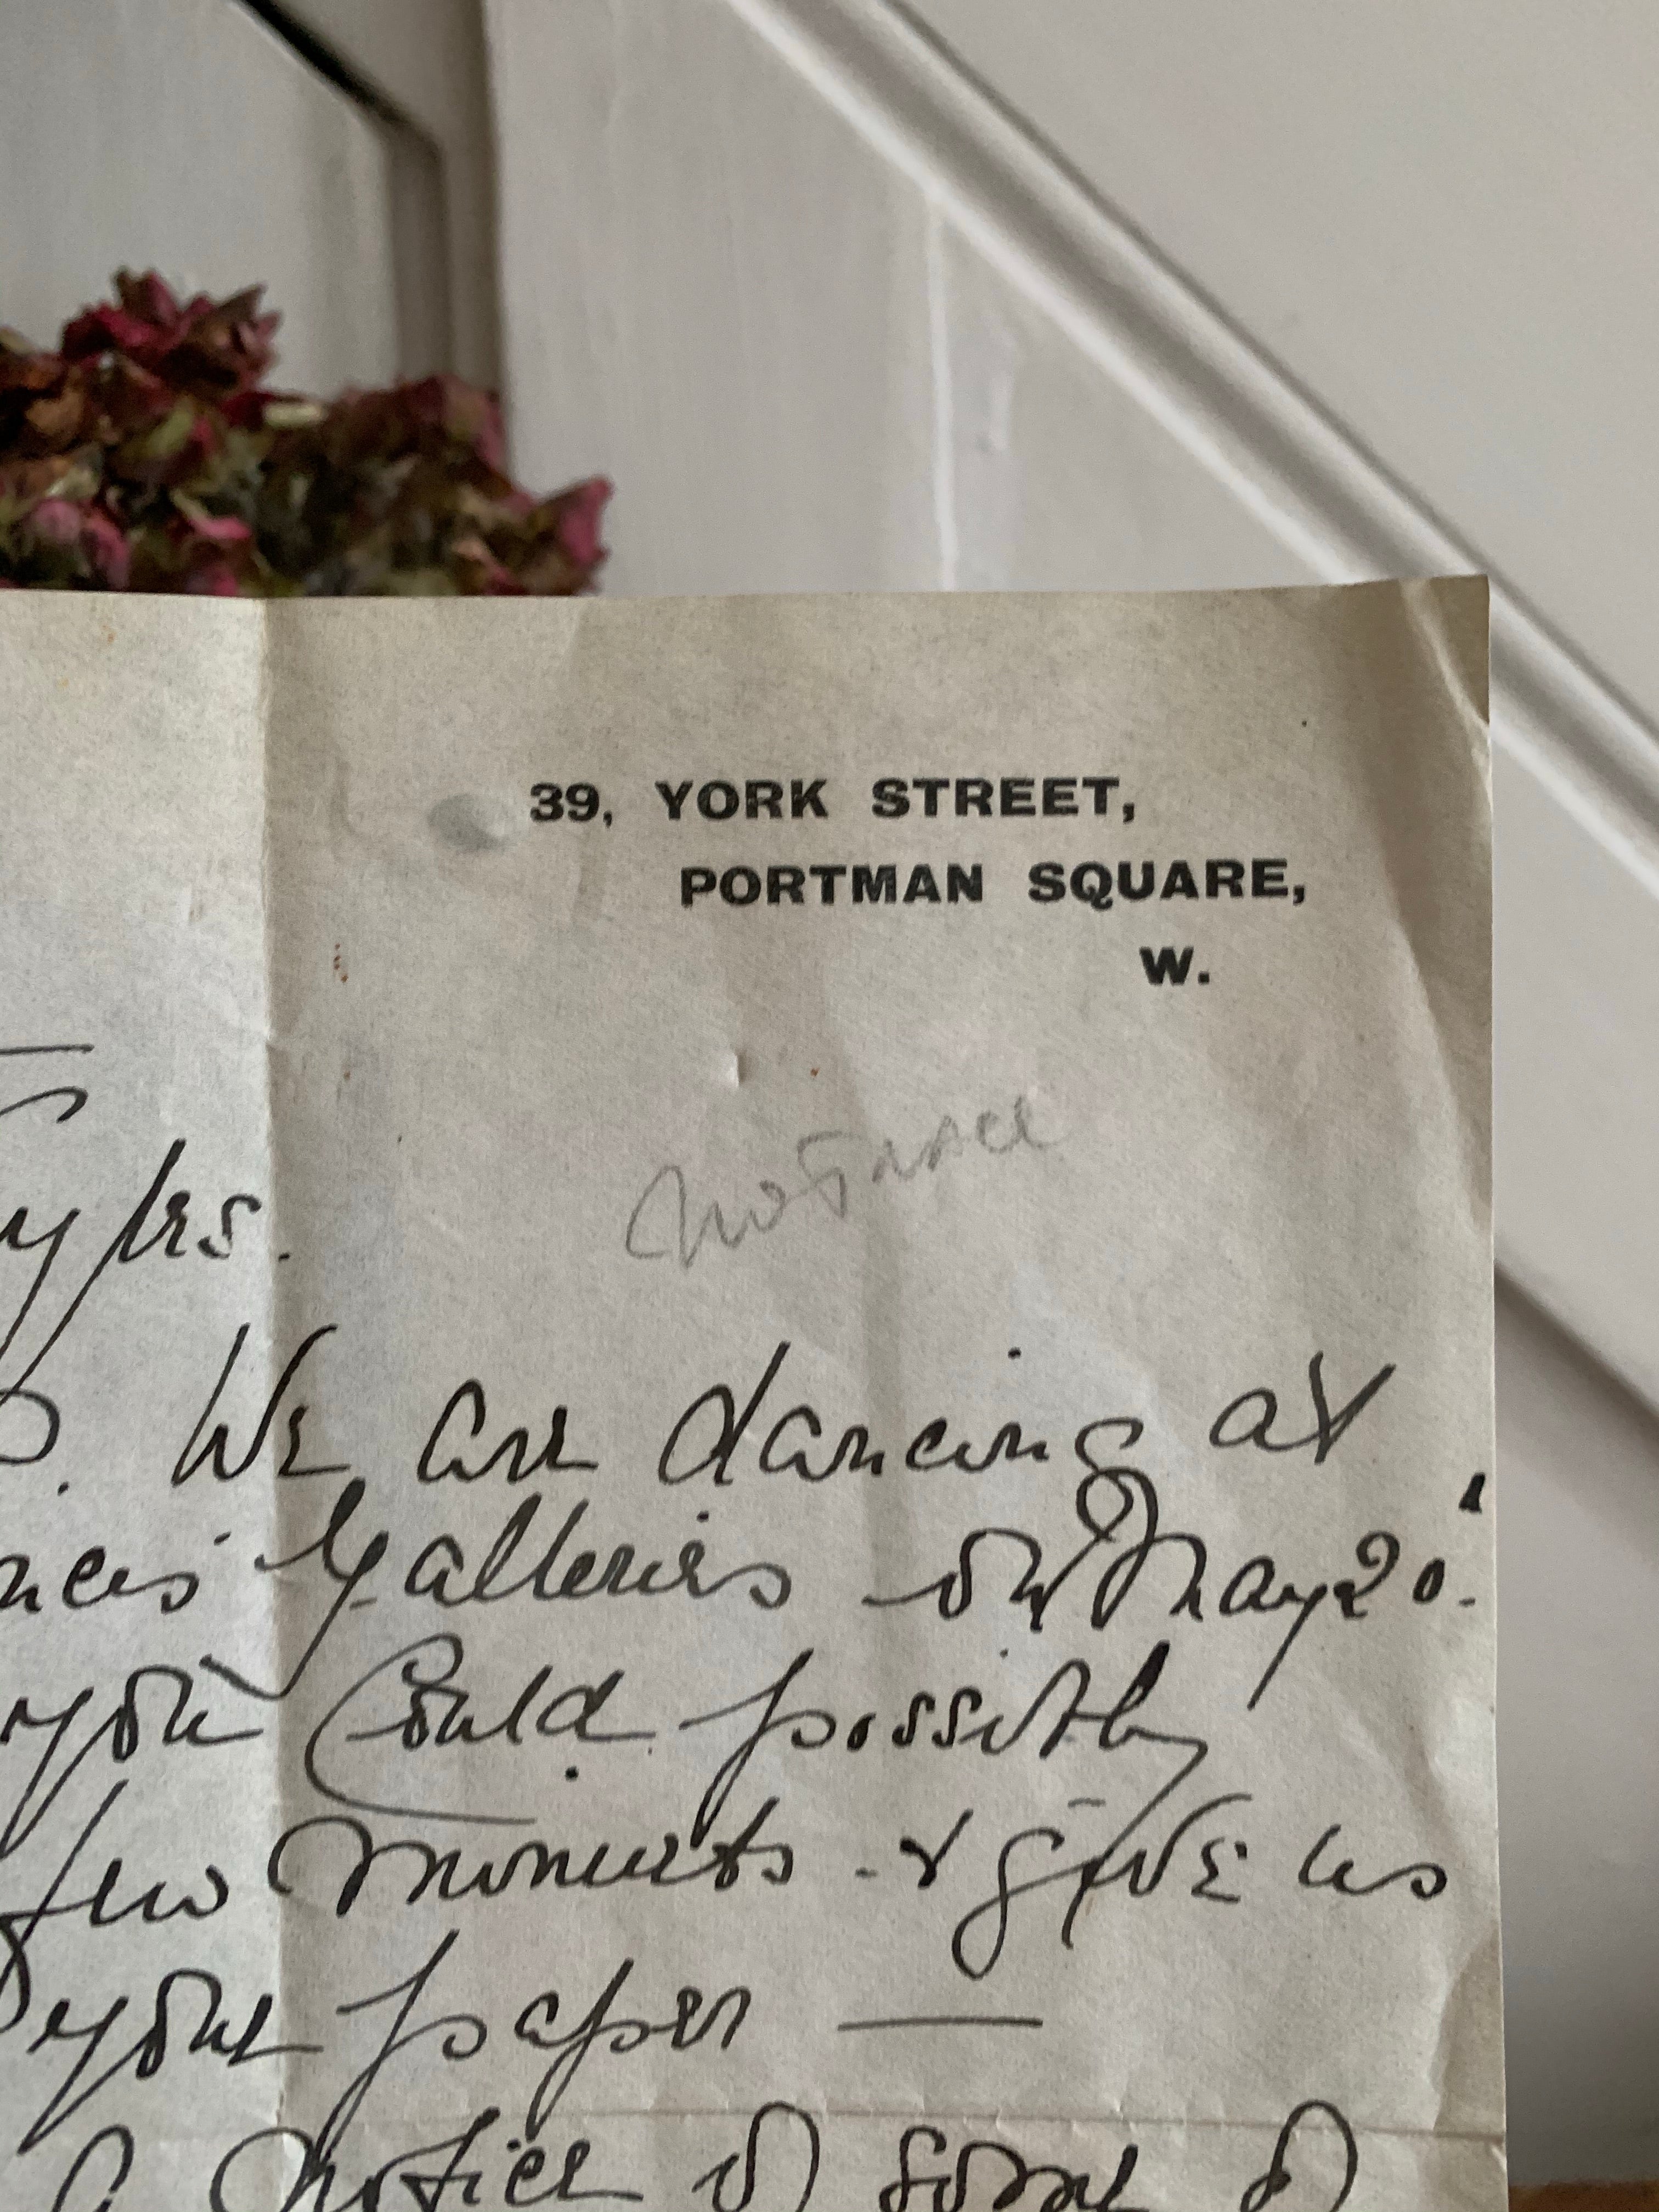 39, YORK STREET,
PORTMAN SQUARE,
W.
We are dancing at
Galleries on May 20.
you could possibly
few moments - & give us
your paper —
a notice of some of